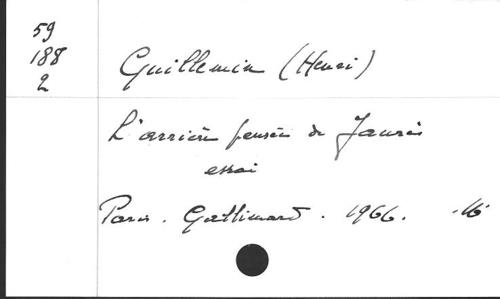 59
188
2
Guillemin (Henri)
L'arrière pensée de Jaurès
essai
Paris. Gallimard. 1966. -16°